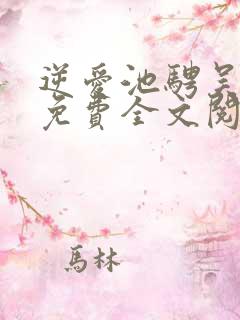 逆愛池騁吳
免費全文閱
馬林